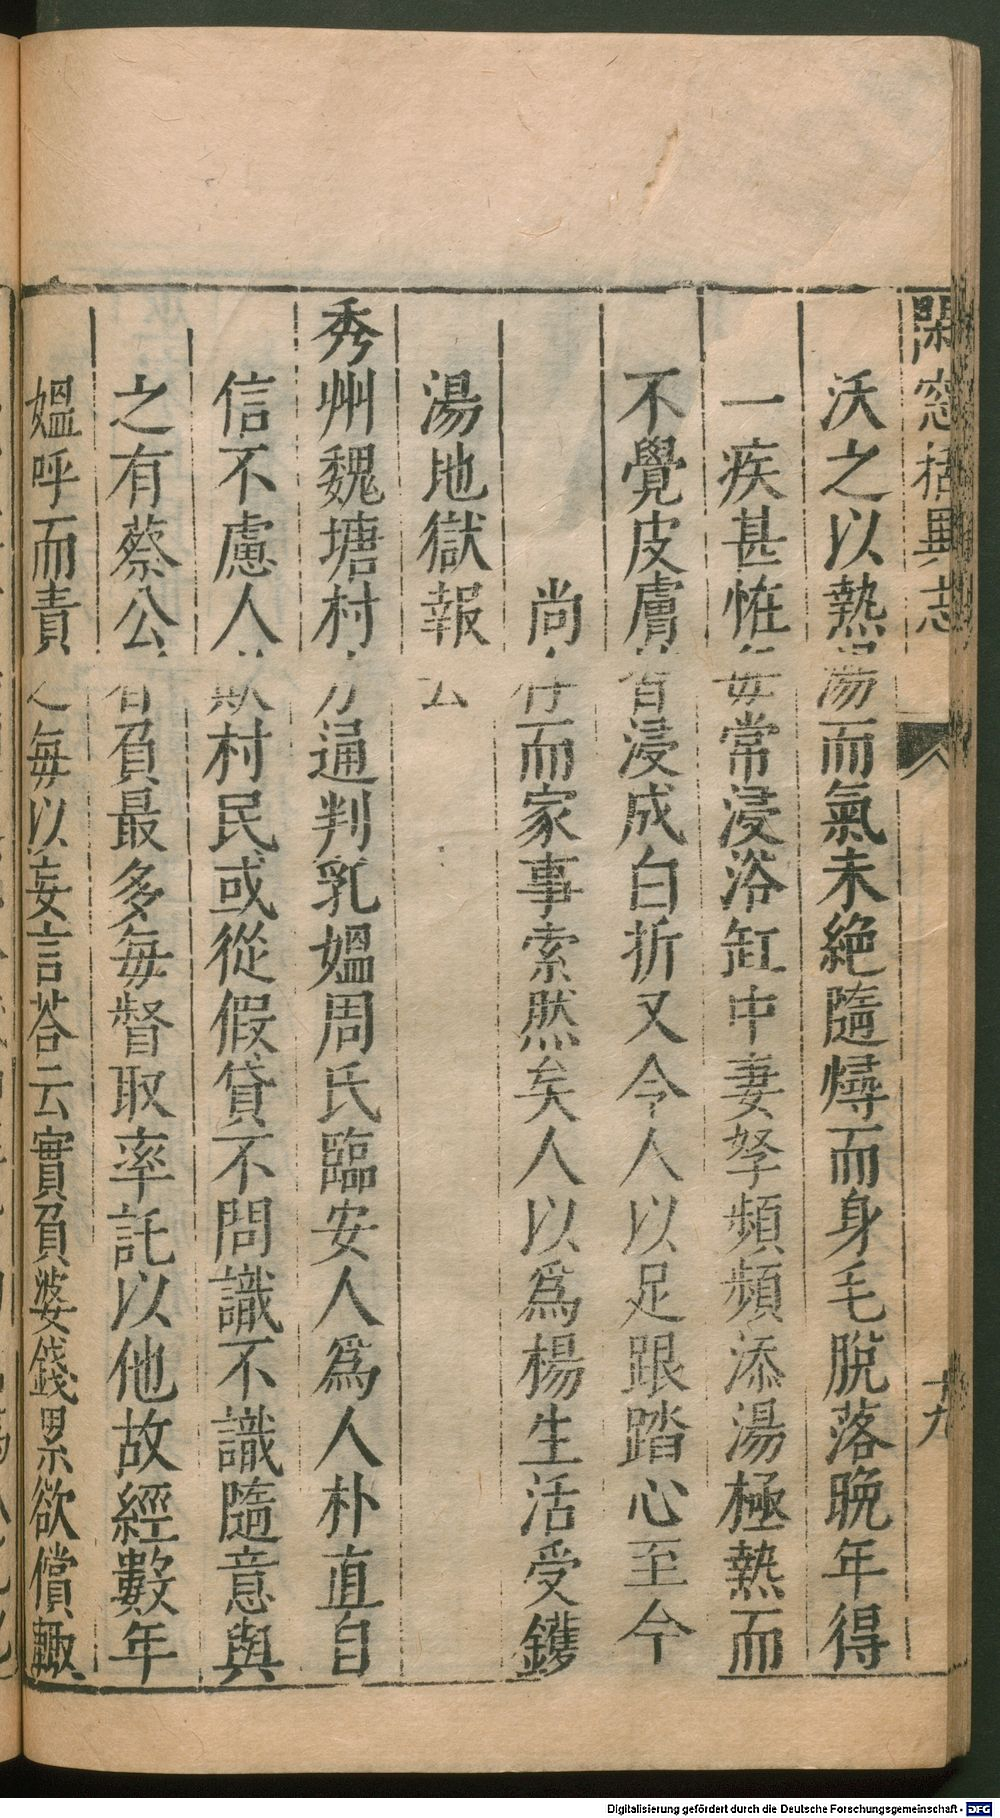 閑窓括異志
十九
沃之以熱湯而氣未絕隨燖而身毛脫落晚年得
一疾甚恠每常浸浴缸中妻孥頻頻添湯極熱而
不覺皮膚皆浸成白折又令人以足跟踏心至今
尚存而家事索然矣人以爲楊生活受鑊
湯地獄報云
秀州魏塘村方通判乳媼周氏臨安人爲人朴直自
信不慮人欺村民或從假貸不問識不識隨意與
之有蔡公者負最多每督取率託以他故經數年
媼呼而責之每以妄言荅云實負婆錢累欲償輙
Digitalisierung gefördert durch die Deutsche Forschungsgemeinschaft - DFG